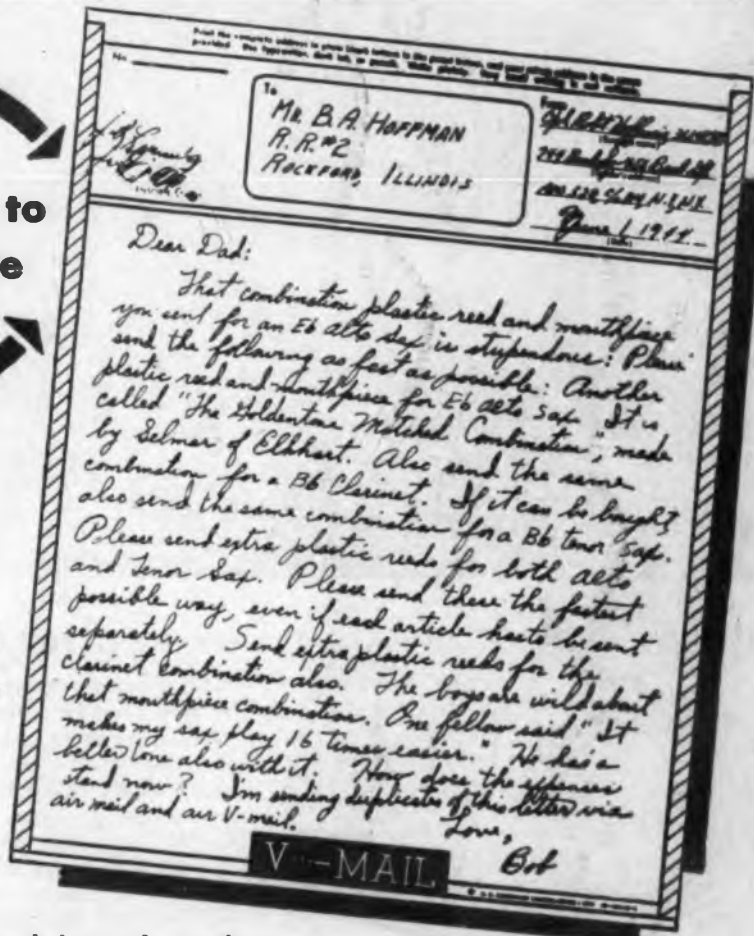 to
e
Print the complete address in plain block letters in the panel below, and your return address in the space
provided.
No.
To
MR. B. A. HOFFMAN
R. R. #2
ROCKFORD, ILLINOIS
From
N.Y. N.Y.
June 1 1944
Dear Dad:
That combination plastic reed and mouthpiece
you sent for an Eb alto sax is stupendous! Please
send the following as fast as possible: Another
plastic reed and mouthpiece for Eb alto sax. It is
called "The Goldentone Matched Combination", made
by Selmer of Elkhart. Also send the same
combination for a Bb Clarinet. If it can be bought,
also send the same combination for a Bb tenor sax.
Please send extra plastic reeds for both alto
and Tenor Sax. Please send these the fastest
possible way, even if each article has to be sent
separately. Send extra plastic reeds for the
clarinet combination also. The boys are wild about
that mouthpiece combination. One fellow said "It
makes my sax play 16 times easier." He has a
better tone also with it. How does the expenses
stand now? I'm sending duplicates of this letter via
air mail and air V-mail.
Love,
Bob
V-MAIL